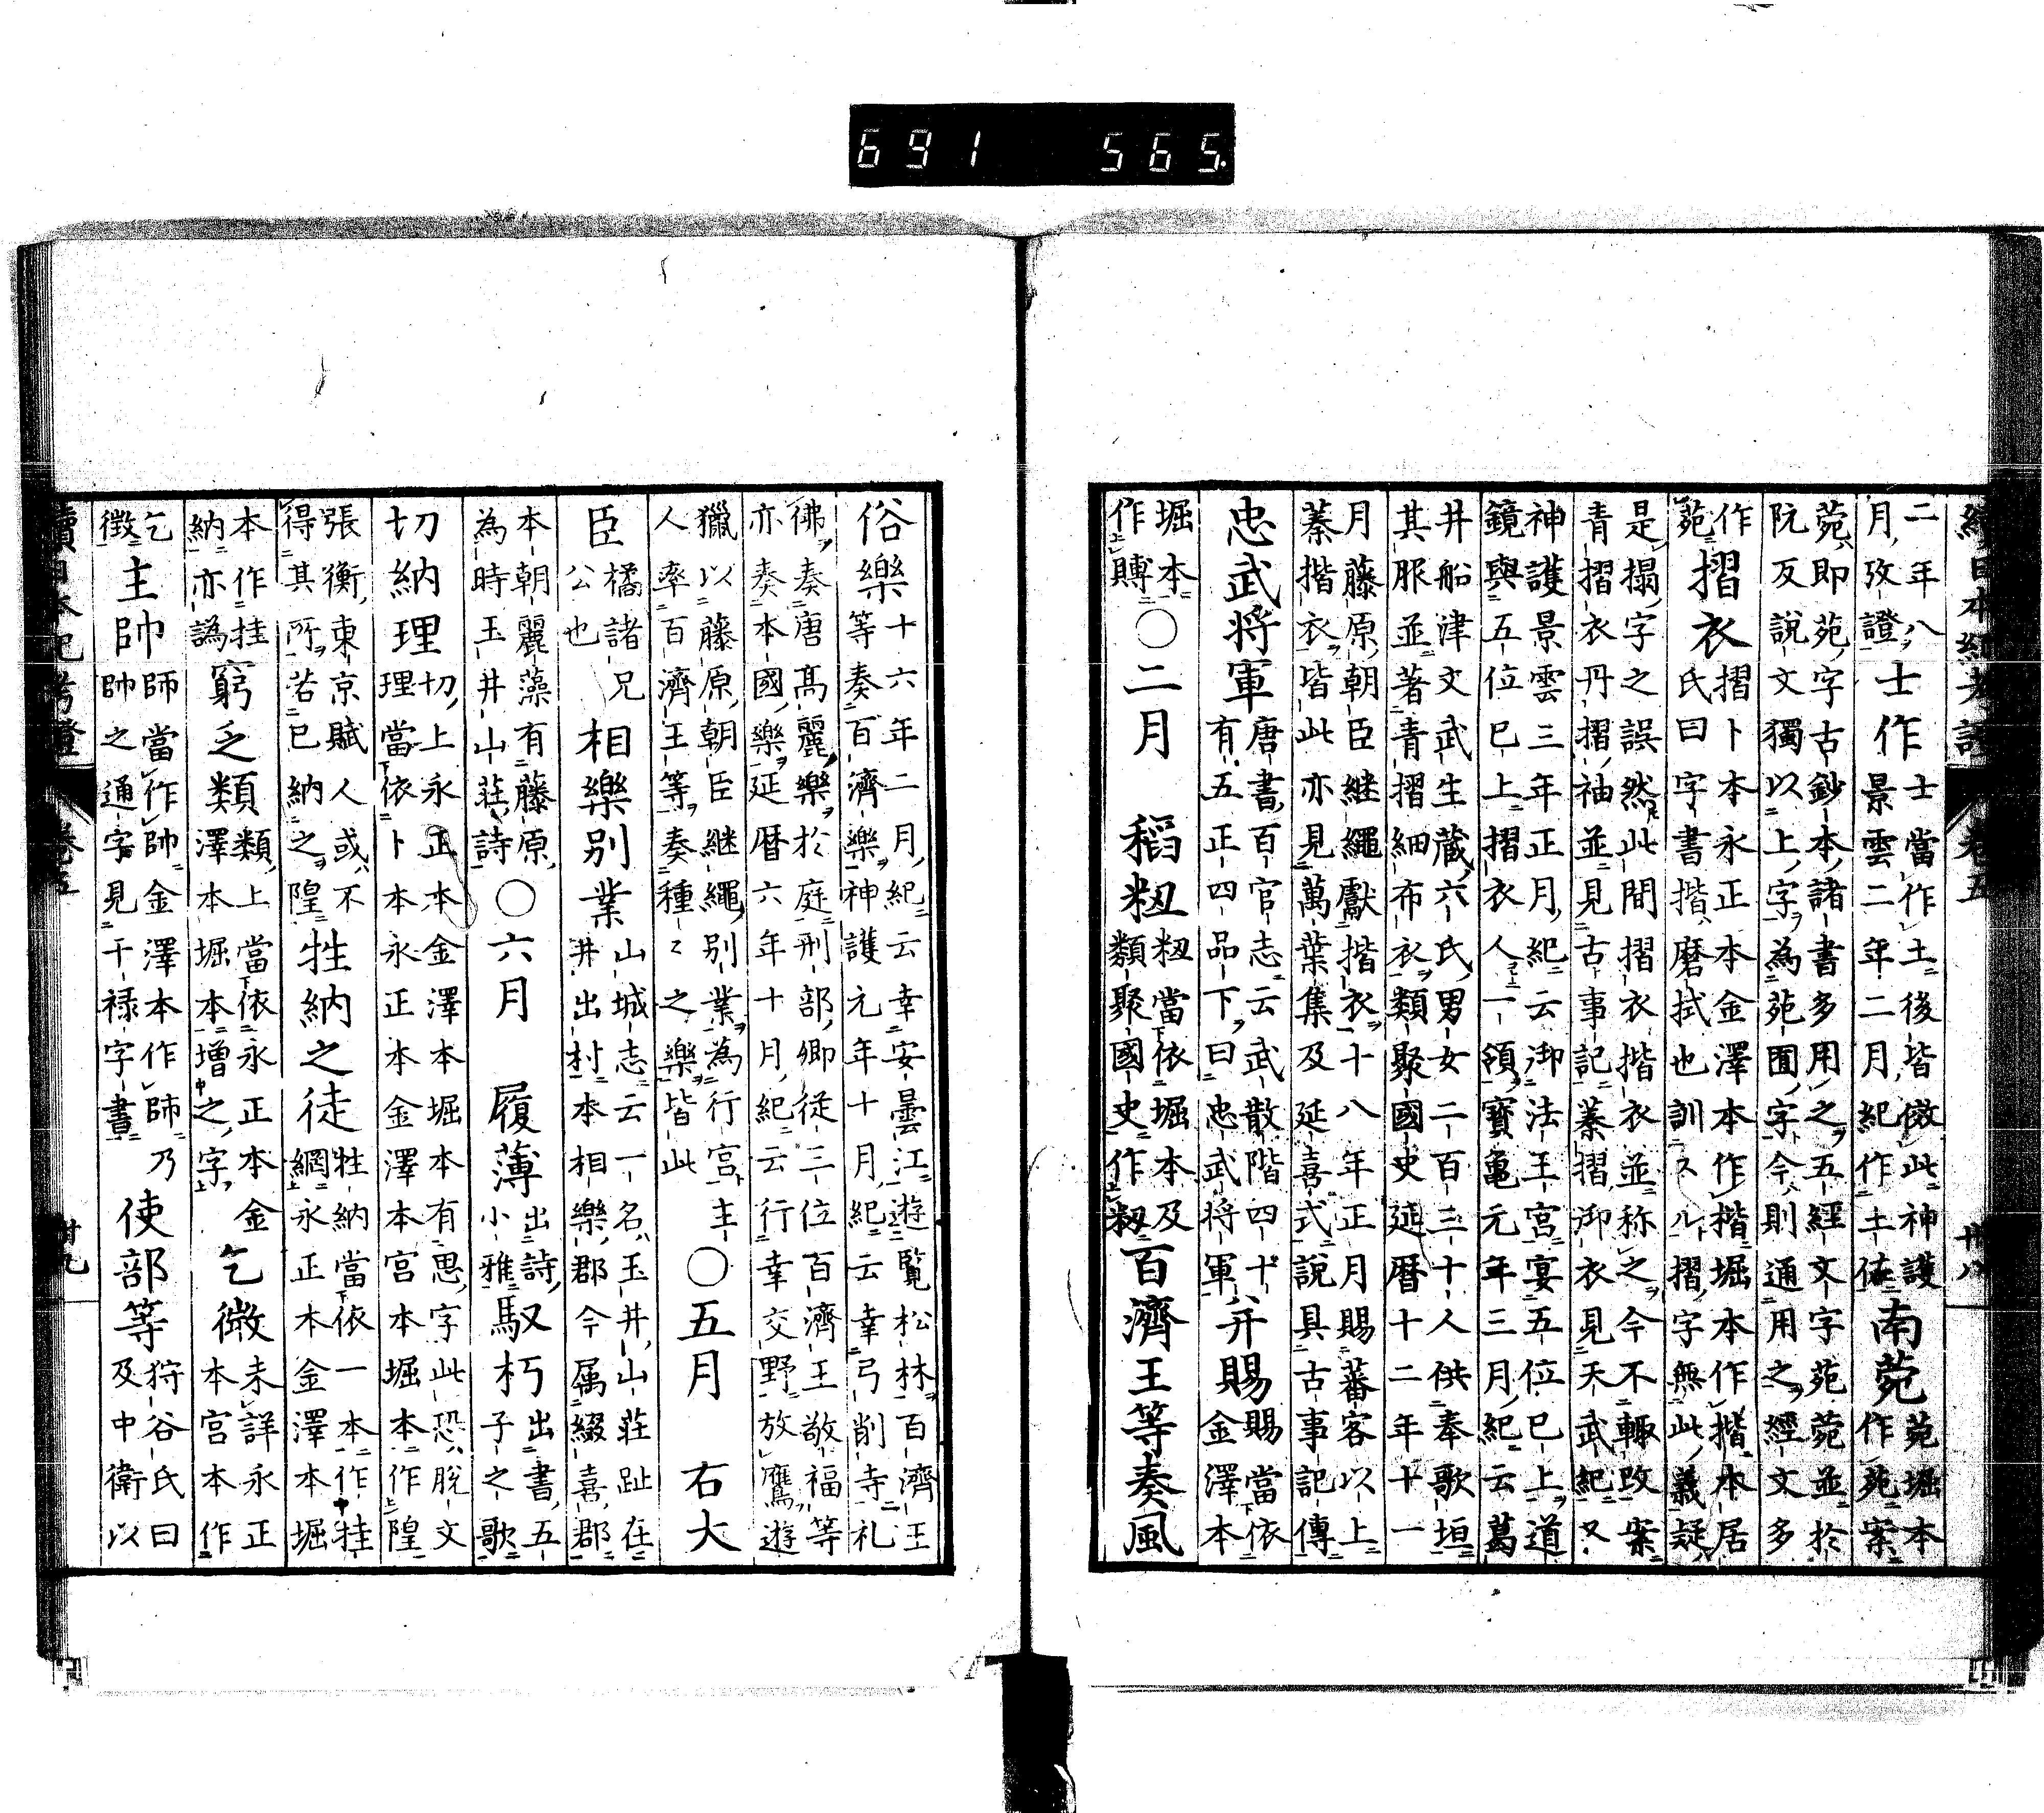 691 565.
續日本紀考證 卷五 卅八
二年八
月、攷證、
士作
士當作土後皆倣此神護
景雲二年二月紀作土佐
南菀
菀堀本
作苑案
菀即苑字古鈔本諸書多用之五經文字苑菀並於
阮反說文獨以上字為苑囿字今則通用之經文多
作
苑
摺衣
摺卜本永正本金澤本作楷堀本作揩本居
氏曰字書揩磨拭也訓スル摺字無此義疑
是揚字之誤然此間摺衣揩衣並称之今不輙改案
青摺衣丹摺袖並見古事記蓁摺御衣見天武紀又
神護景雲三年正月紀云御法王宮宴五位已上道
鏡與五位已上摺衣人一領寶龜元年三月紀云葛
井船津文武生藏六氏男女二百三十人供奉歌垣
其服並著青摺細布衣類聚國史延曆十二年十一
月藤原朝臣継繩獻揩衣十八年正月賜蕃客以上
蓁揩衣皆此亦見萬葉集及延喜式說具古事記傳
忠武将軍
唐書百官志云武散階四十
有五正四品下曰忠武将軍
并賜
賜當依
金澤本
堀本
作賻
○二月 稻籾
籾當依堀本及
類聚國史作籾
百濟王等奏風
俗樂
等十六年二月紀云幸安曇江遊覧松林百濟王
等奏百濟樂神護元年十月紀云幸弓削寺礼
佛奏唐髙麗樂於庭刑部卿従三位百濟王敬福等
亦奏本國樂延曆六年十月紀云行幸交野放鷹遊
獵以藤原朝臣継繩別業為行宮主
人率百濟王等奏種〻之樂皆此
○五月 右大
臣
橘諸兄
公也
相樂別業
山城志云一名玉井山莊趾在
井出村本相樂郡今属綴喜郡
本朝麗藻有藤原
為時玉井山莊詩
○六月 履薄
出詩
小雅
馭朽
出書五
子之歌
切納理
切上永正本金澤本堀本有思字此恐脫文
理當依卜本永正本金澤本宮本堀本作隍
張衡東京賦人或不
得其所若已納之隍
牲納之徒
牲納當依一本作挂
網永正本金澤本堀
本作挂
納亦譌
窮乏類
類上當依永正本金
澤本堀本增之字
乞微
未詳永正
本宮本作
乞
徴
主帥
師當作帥金澤本作師乃
帥之通字見干禄字書
使部等
狩谷氏曰
及中衛以
續日本紀考證 卷五 卅九